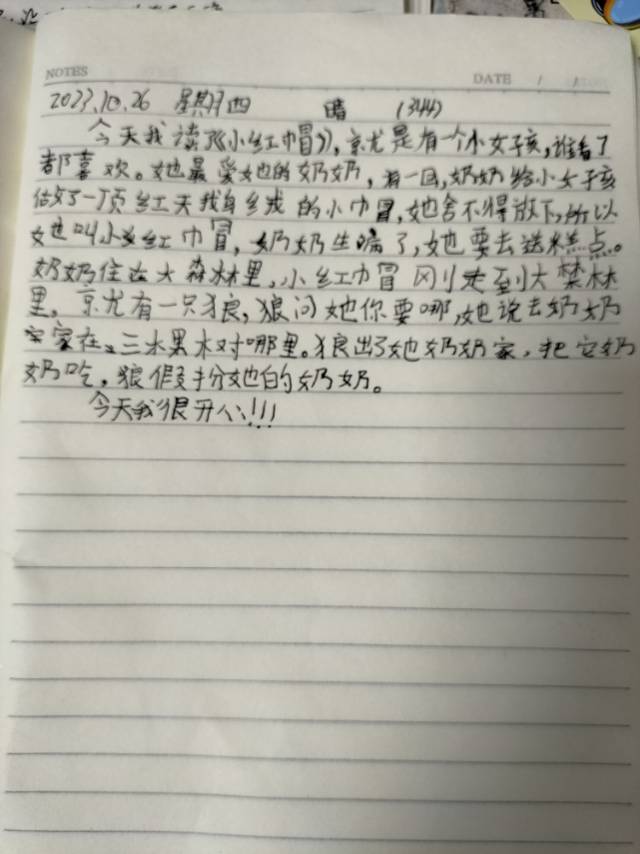 NOTES
DATE / /
2023.10.26 星期四 晴 (344)
今天我读了《小红帽》,京尤是有一个小女孩,谁看了
都喜欢。她最爱她的奶奶,有一回,奶奶给小女孩
做了一顶红天我鸟纟戎的小巾冒,她舍不得放下,所以
她叫小红巾冒,奶奶生病了,她要去送糕点。
奶奶住在大森林里,小红巾冒刚走到大森林
里,京尤有一只狼,狼问她你要哪,她说去奶奶
家在三水果木对哪里。狼出了她奶奶家,把它奶
奶吃,狼假扮她的奶奶。
今天我很开心!!!